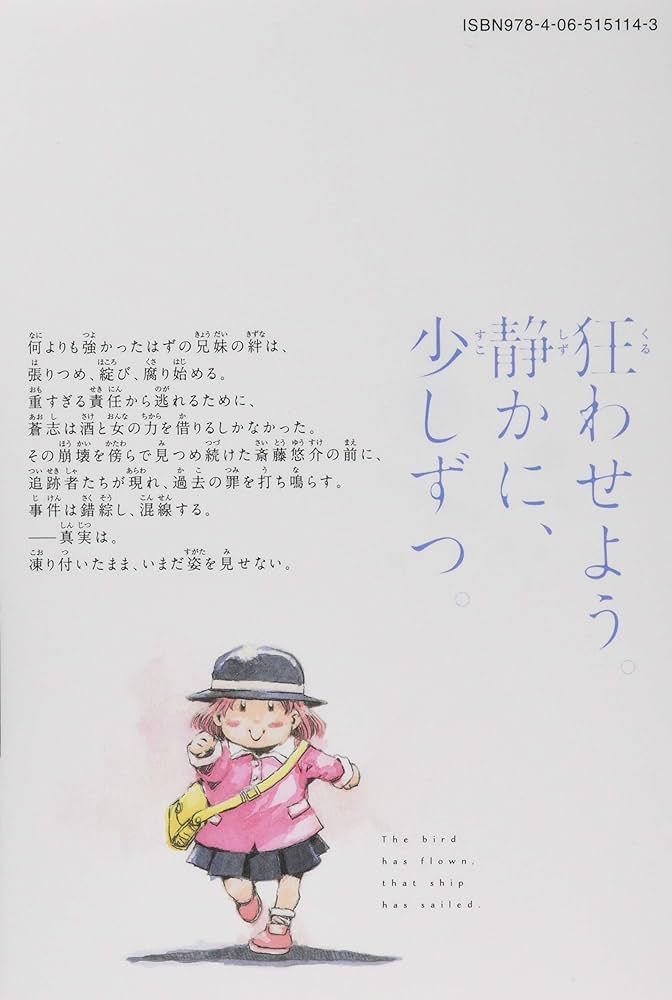 ISBN978-4-06-515114-3
狂わせよう。
静かに、
少しずつ。
何よりも強かったはずの兄妹の絆は、
張りつめ、綻び、腐り始める。
重すぎる責任から逃れるために、
蒼志は酒と女の力を借りるしかなかった。
その崩壊を傍らで見つめ続けた斎藤悠介の前に、
追跡者たちが現れ、過去の罪を打ち鳴らす。
事件は錯綜し、混線する。
──真実は。
凍り付いたまま、いまだ姿を見せない。
The bird
has flown,
that ship
has sailed.